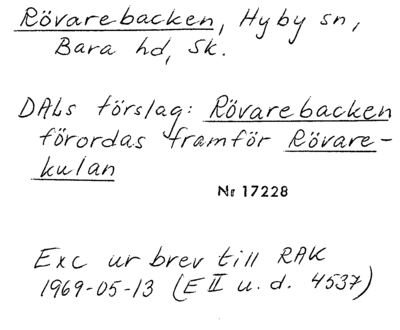 Rövarebacken, Hyby sn,
Bara hd, Sk.
DALs förslag: Rövarebacken
förordas framför Rövare-
kulan
Nr 17228
Exc ur brev till RAK
1969-05-13 (E II u. d. 4537)